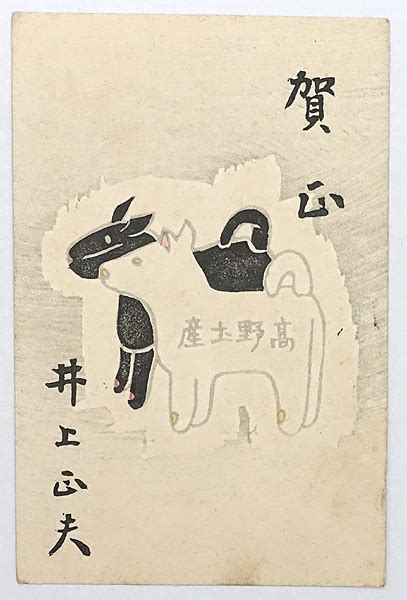 賀正
高野土産
井上正夫